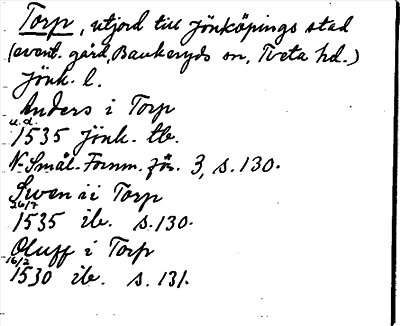 Torp, utjord till Jönköpings stad
(event. gård, Bankeryds sn, Tveta hd.)
Jönk. l.
Anders i Torp
u.d.
1535 Jönk. tb.
N-Smål-Fornm. för. 3, s. 130.
Swen ii Torp
26/7
1535 ib. s. 130.
Oluff i Torp
16/2
1530 ib. s. 131.